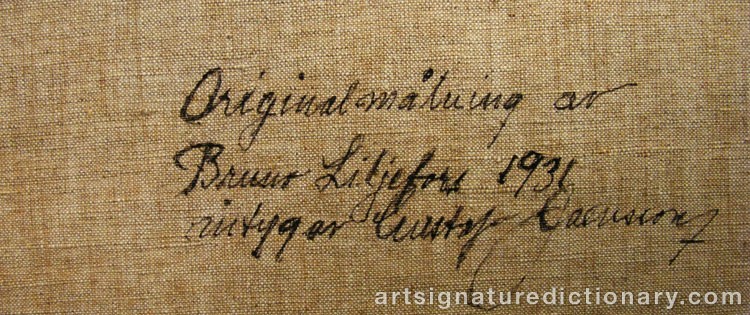 Originalmålning av
Bruno Liljefors 1931
intygar Gustaf
artsignaturedictionary.com